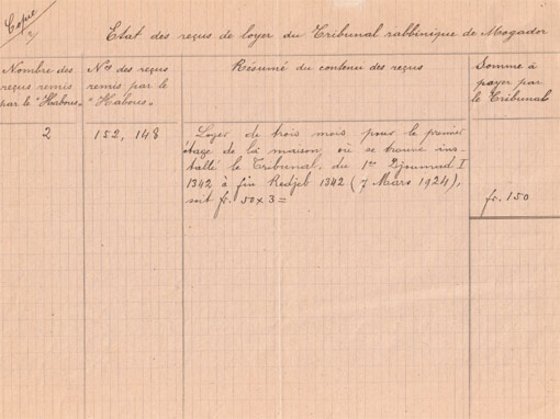 Copie
Etat des reçus de loyer du Tribunal rabbinique de Mogador
Nombre des
reçus remis
par le "Habous"
Nos des reçus
remis par le
"Habous"
Résumé du contenu des reçus
Somme à
payer par
le Tribunal
2
152, 148
Loyer de trois mois pour le premier
étage de la maison où se trouve ins-
tallé le Tribunal, du 1er Djoumad I
1342 à fin Redjeb 1342 (7 Mars 1924),
soit fr. 50 x 3 =
fr. 150